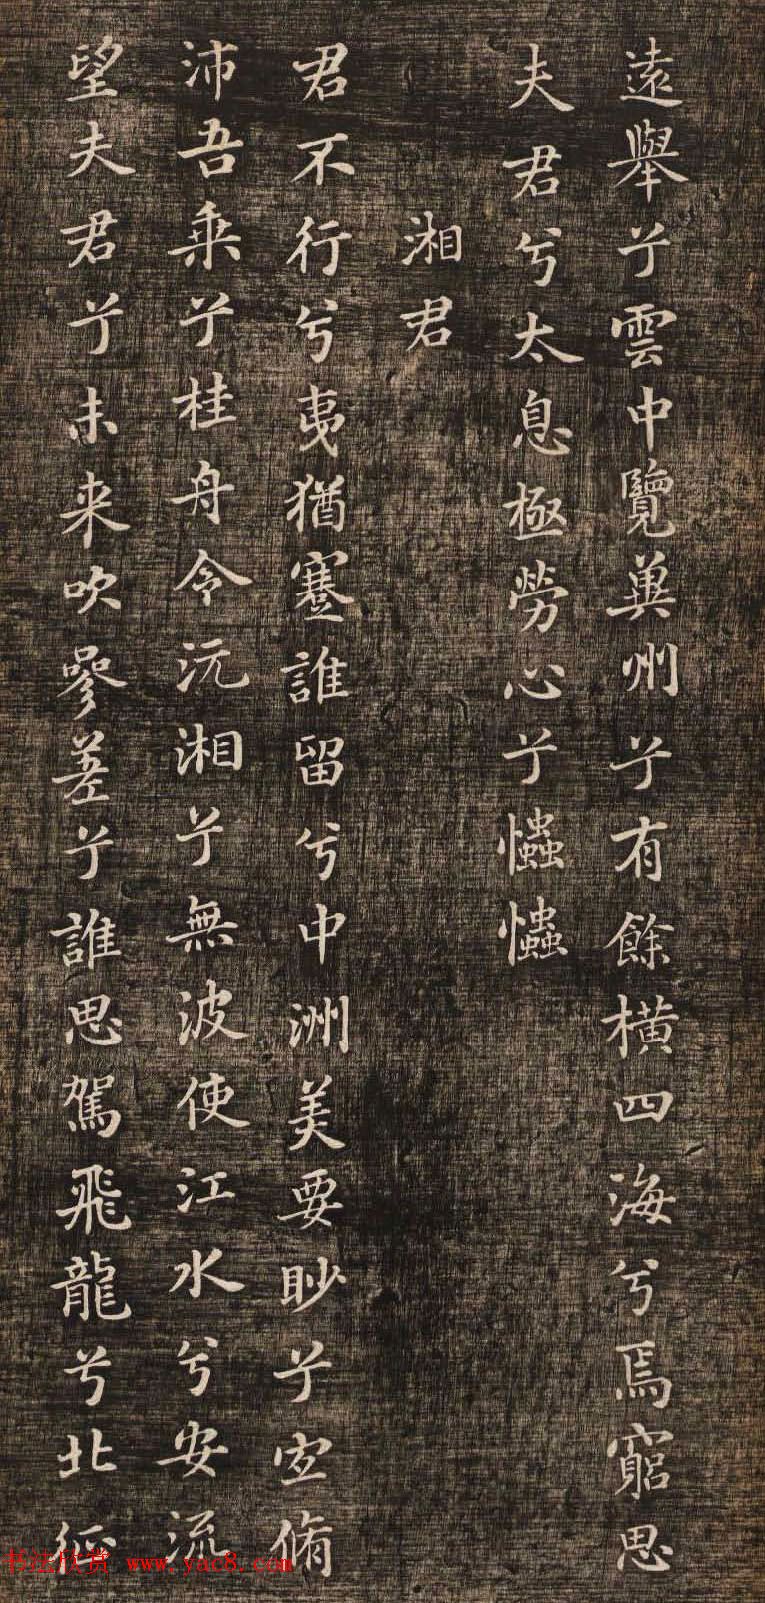 遠舉兮雲中覽兾州兮有餘橫四海兮焉窮思
夫君兮太息極勞心兮㦀㦀
湘君
君不行兮夷猶蹇誰留兮中洲美要眇兮宜脩
沛吾乗兮桂舟令沅湘兮無波使江水兮安流
望夫君兮未来吹參差兮誰思駕飛龍兮北征
书法欣赏 www.yac8.com